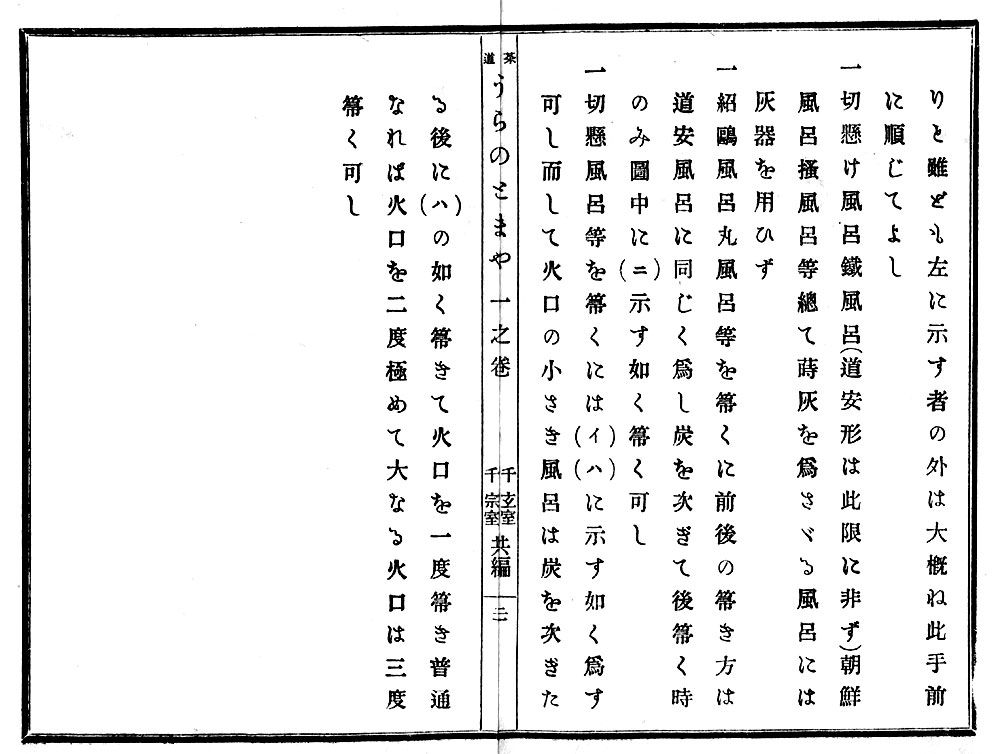 りと雖ども左に示す者の外は大概ね此手前
に順じてよし
一切懸け風呂鐵風呂(道安形は此限に非ず)朝鮮
風呂搔風呂等總て蒔灰を爲さゞる風呂には
灰器を用ひず
一紹鷗風呂丸風呂等を箒くに前後の箒き方は
道安風呂に同じく爲し炭を次ぎて後箒く時
のみ圖中に(ニ)示す如く箒く可し
一切懸風呂等を箒くには(イ)(ハ)に示す如く爲す
可し而して火口の小さき風呂は炭を次ぎた
茶道 うらのとまや 一之卷 千玄室 千宗室 共編 二
る後に(ハ)の如く箒きて火口を一度箒き普通
なれば火口を二度極めて大なる火口は三度
箒く可し